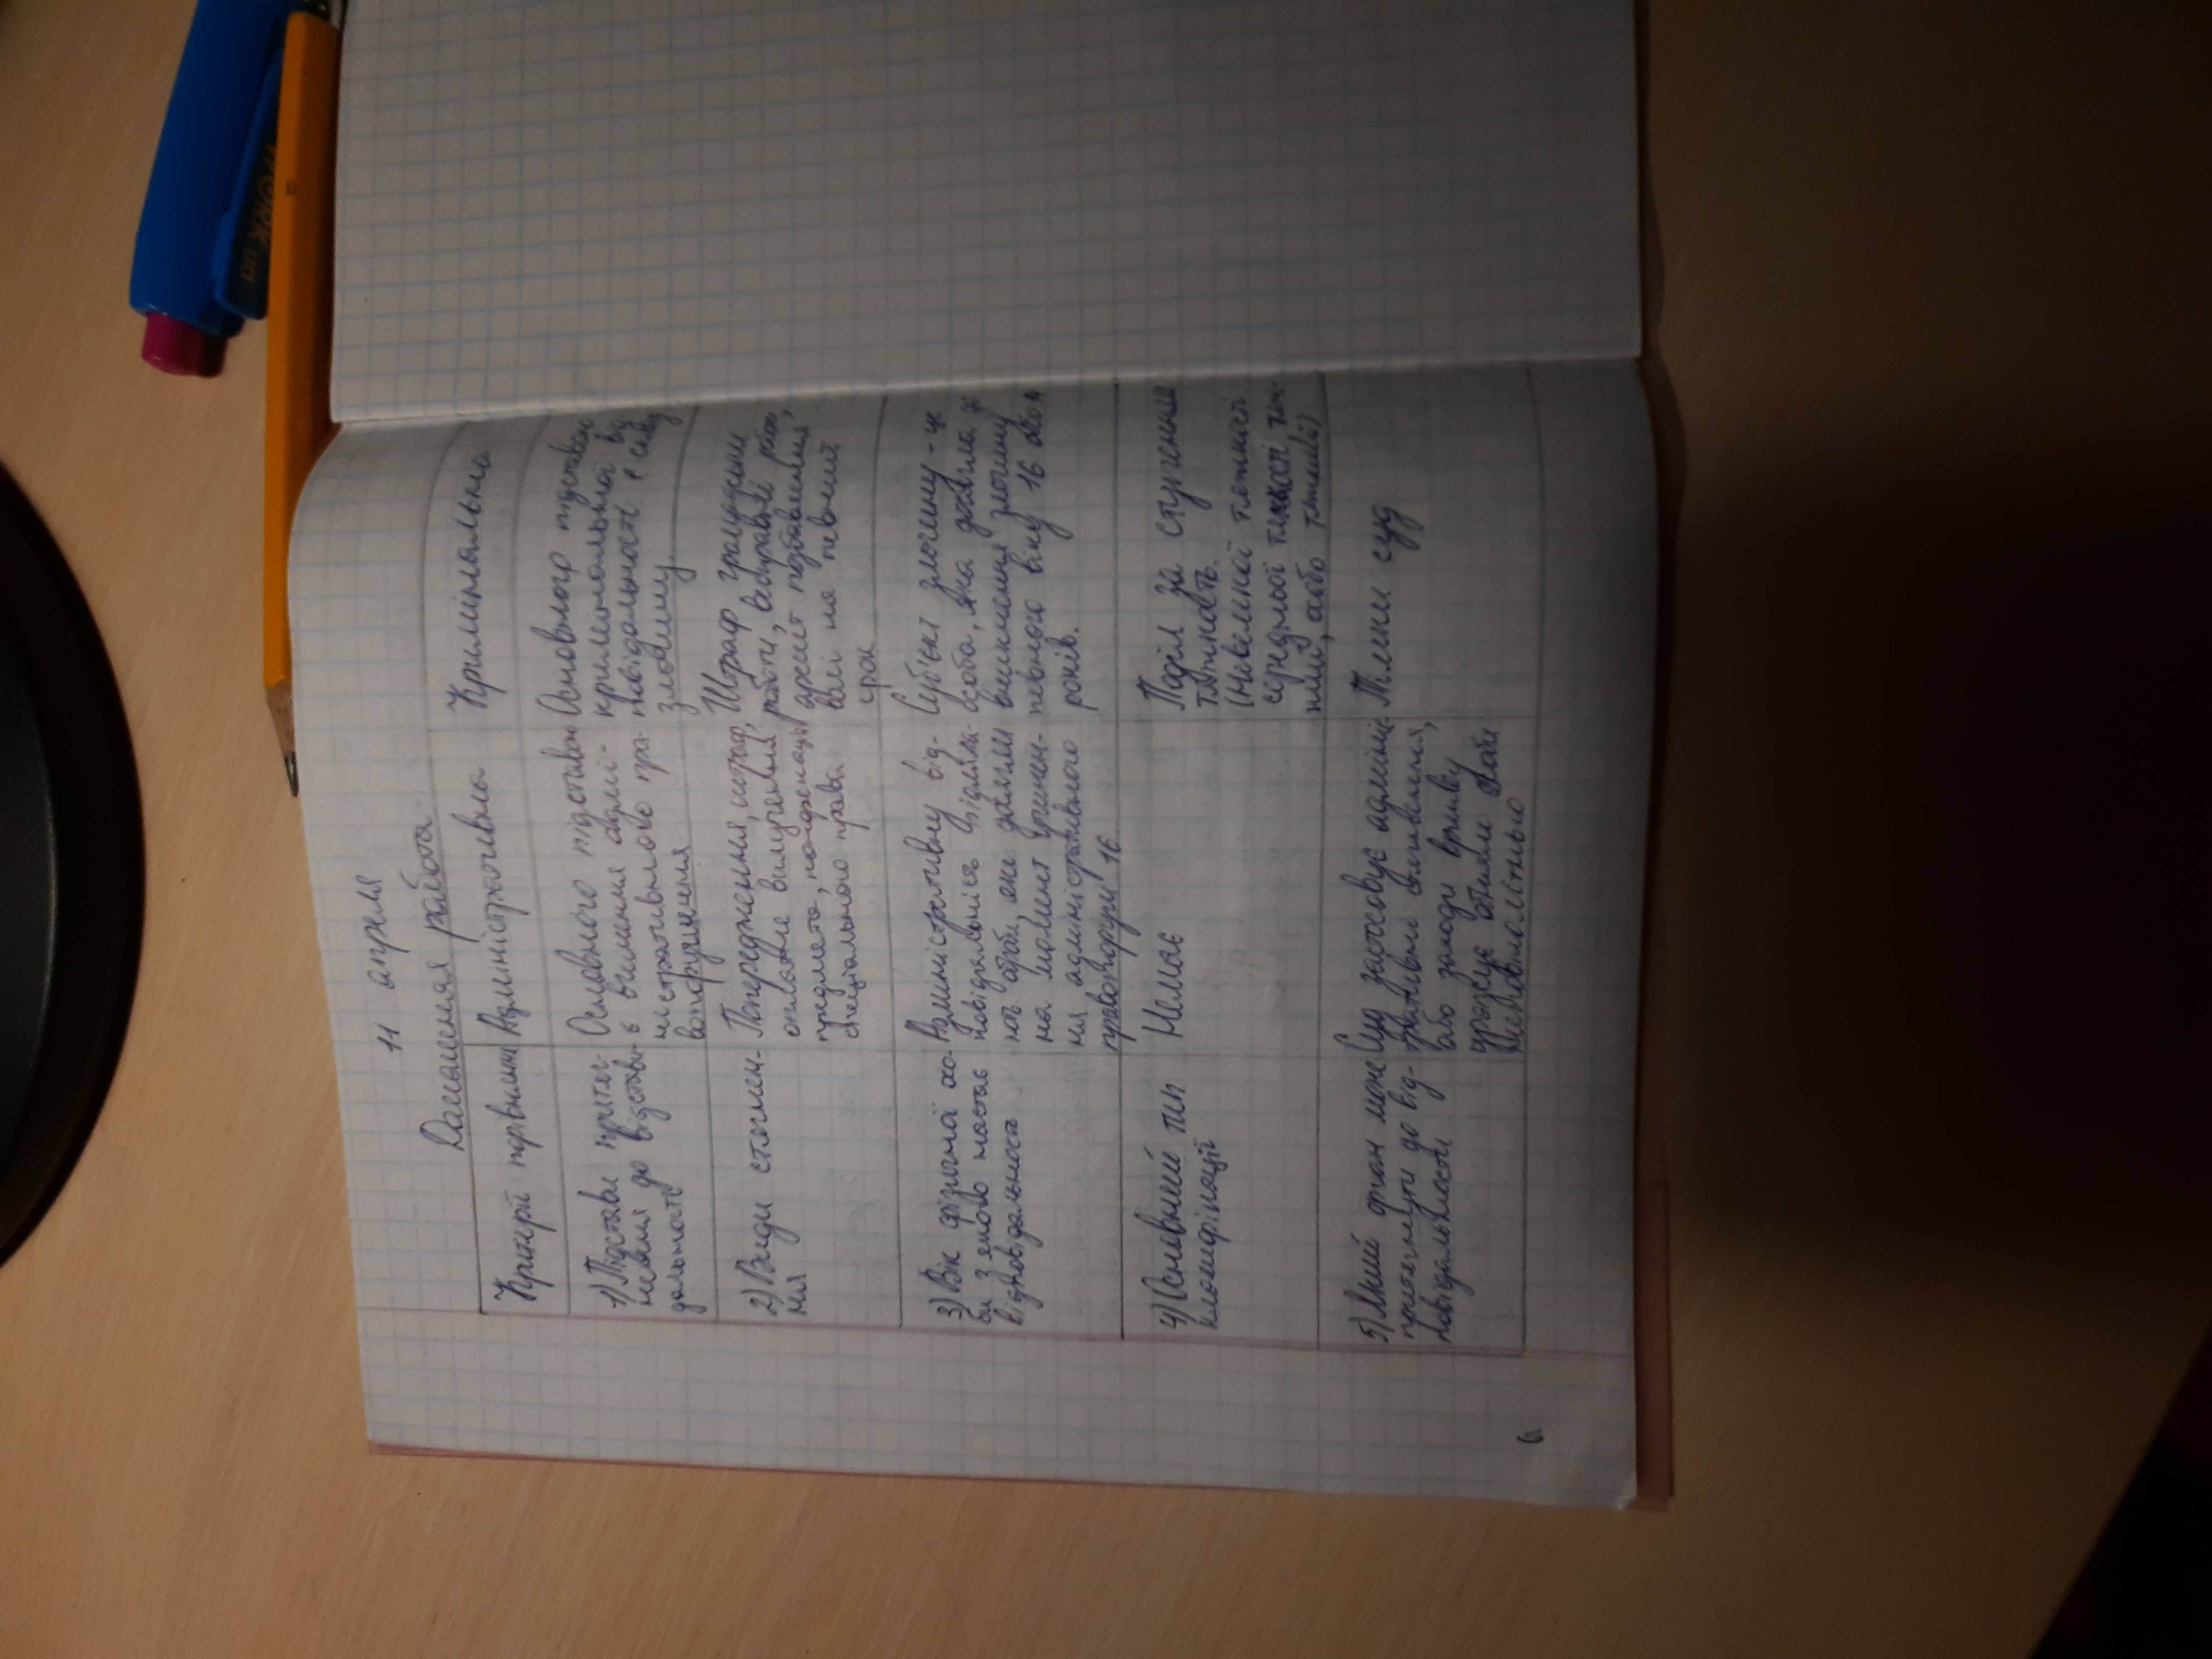 11 апреля
Домашняя работа
Критерії порівняння
Адміністративна
Кримінальна
1) Підстави притяг-
нення до відпові-
дальності
Основного підставою
є вчинення адмі-
ністративного пра-
вопорушення
Основного підставою
кримінальної від
повідальності є
злочину.
2) Види стягнен-
ня
Попередження, штраф,
оплатне вилучення
предмета,
спеціального права
Штраф, громадські
роботи, виправні роботи,
арешт позбавлення
волі на певний
срок
3) Вік фізичної осо-
би з якого настає
відповідальність
Адміністративну від-
повідальність
на момент вчинен-
ня адміністративного
16
Суб'єкт злочину - це
особа, яка досягла до
вчинення злочину
певного віку 16
років.
4) Основний тип
класифікації
Немає
Поділ за ступенем
тяжкость.
(Невеликої тяжкості
середньої тяжкості тяж-
кий, особо тяжкий)
5) Який орган може
притягнути до від-
повідальності
Суд застосовує адміні-
стративні стягнення,
або заходи впливу
Тільки суд
WORK.ua